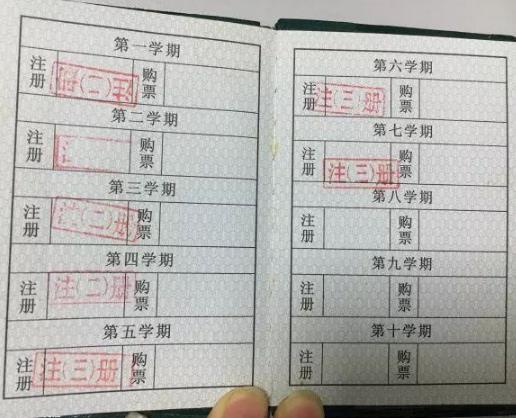 第一学期
注册 册(二)注 购票
第二学期
注册 注 购票
第三学期
注册 注(二)册 购票
第四学期
注册 注(二)册 购票
第五学期
注册 注(三)册 购票
第六学期
注册 注(三)册 购票
第七学期
注册 注(三)册 购票
第八学期
注册 购票
第九学期
注册 购票
第十学期
注册 购票